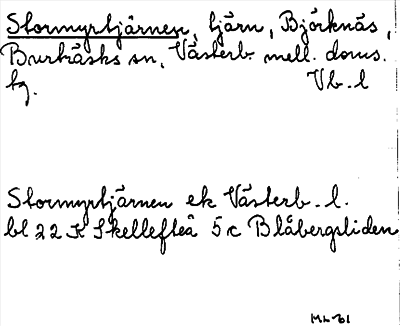 Stormyrtjärnen, tjärn, Björknäs,
Burträsks sn, Västerb. mell. doms.
tg. Vb. l
Stormyrtjärnen ek Västerb. l.
bl 22 K Skellefteå 5c Blåbergsliden